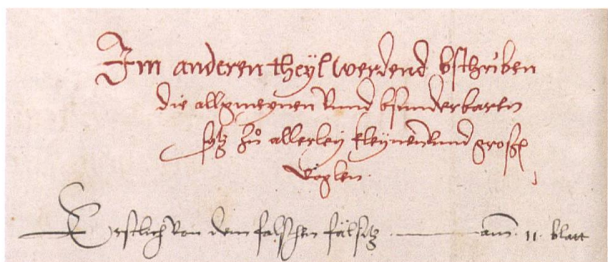 Im anderen theyl werdend bschriben
die allgmeynen vnnd bsunderbaren
sytz zů allerley kleynen vnnd großen
Voglen.
Erstlich von dem falschen fälsytz am 11 blatt